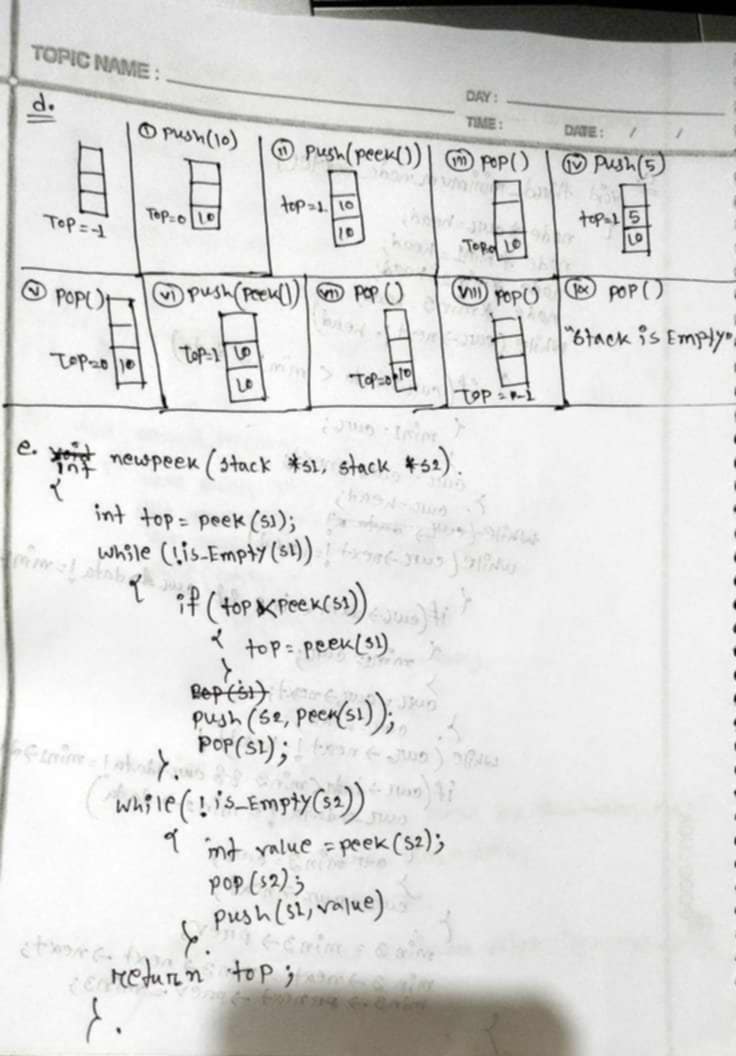 TOPIC NAME :
DAY :
TIME :
DATE : / /
d.
Top = -1
① Push(10)
Top=0 10
② push(peek())
top=1 10
10
③ pop()
Top=0 10
④ Push(5)
top=1 5
10
⑤ POP()
Top=0 10
⑥ push(peek())
Top=1 10
10
⑦ POP()
Top=0 10
⑧ POP()
TOP = -1
⑨ POP()
"Stack is Empty"
e. void
int newpeek (stack *s1, stack *s2).
{
int top = peek(s1);
while (!is_Empty(s1))
{ if (top < peek(s1))
{ top = peek(s1)
}
Pop(s1)
push (s2, peek(s1));
POP(s1);
}.
while (!is_Empty(s2))
{ int value = peek(s2);
pop(s2);
push(s1, value)
}.
return top ;
}.